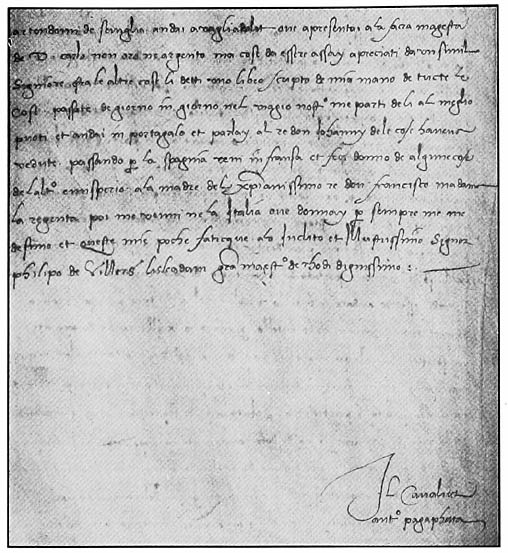 partendomi de seviglia andai a vagliadolit ove apresentai a la sacra magesta
de D. carlo non oro ne argento ma cose da essere assay apreciati da un simil
Signiore fra le altre cose li detti uno libro scripto de mia mano de tucte le
cose passate de giorno in giorno nel viagio nostro me parti de li al meglio
puoti et andai in portagalo et parlay al re don Iohanny de le cose haveva
vedute passando per la spagnia veni in fransa et feci donno de algune cose
de lalto emisperio a la madre del xpianissimo re don francisco madama
la regenta poi me venni ne la Italia ove donnay per sempre me me
desimo et queste mie poche fatique alo Inclito et Illustrissimo Signor
philipo de Villers lisleadam gran maestro de rhodi dignissimo :
Il Cavalier
anto pagaphetta